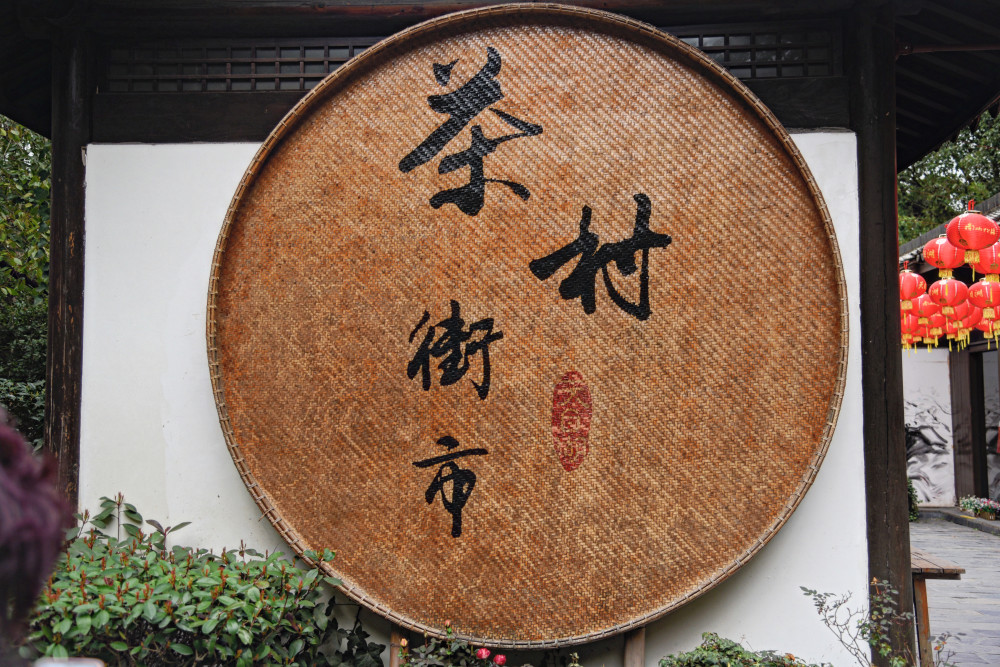 茶
村
街
市